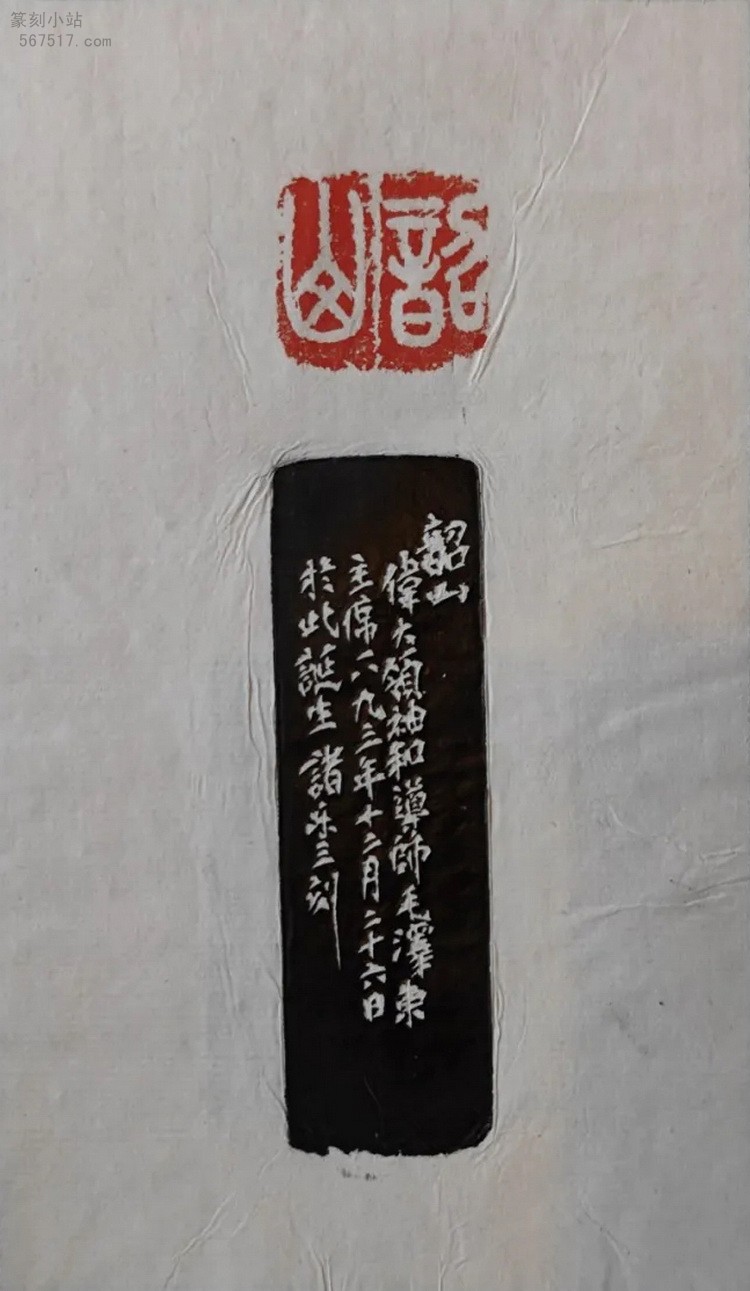 篆刻小站
567517.com
韶山
韶山
偉大領袖和導師毛澤東
主席一八九三年十二月二十六日
於此誕生諸樂三刻